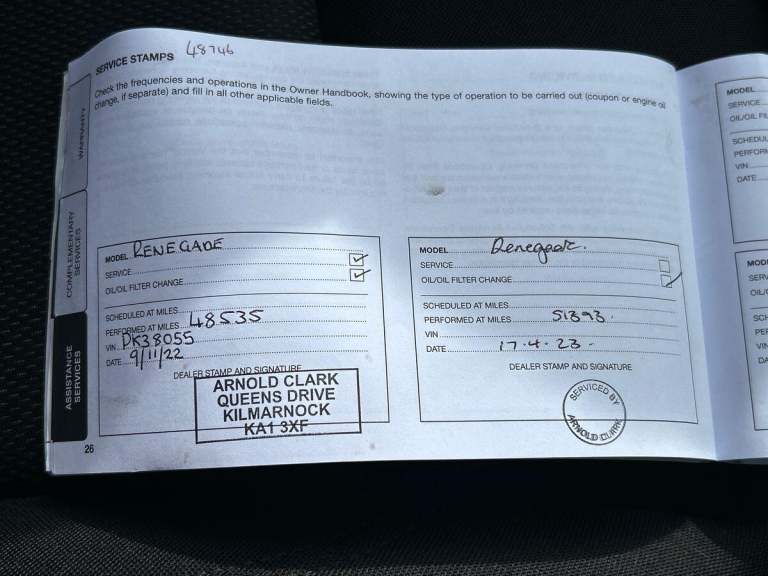 SERVICE STAMPS 48746
Check the frequencies and operations in the Owner Handbook, showing the type of operation to be carried out (coupon or engine oil
change, if separate) and fill in all other applicable fields.
WARRANTY
COMPLEMENTARY
SERVICES
ASSISTANCE
SERVICES
MODEL RENEGADE
SERVICE
OIL/OIL FILTER CHANGE
SCHEDULED AT MILES
PERFORMED AT MILES 48535
VIN PK38055
DATE 9/11/22
DEALER STAMP AND SIGNATURE
ARNOLD CLARK
QUEENS DRIVE
KILMARNOCK
KA1 3XF
MODEL Renegade.
SERVICE
OIL/OIL FILTER CHANGE
SCHEDULED AT MILES
PERFORMED AT MILES 51393.
VIN
DATE 17.4.23-
DEALER STAMP AND SIGNATURE
SERVICED BY
ARNOLD CLARK
26
MODEL
SERVICE
OIL/OIL FIL
SCHEDUL
PERFORM
VIN
DATE
MODE
SERV
OIL/O
SCH
PER
VIN
DA